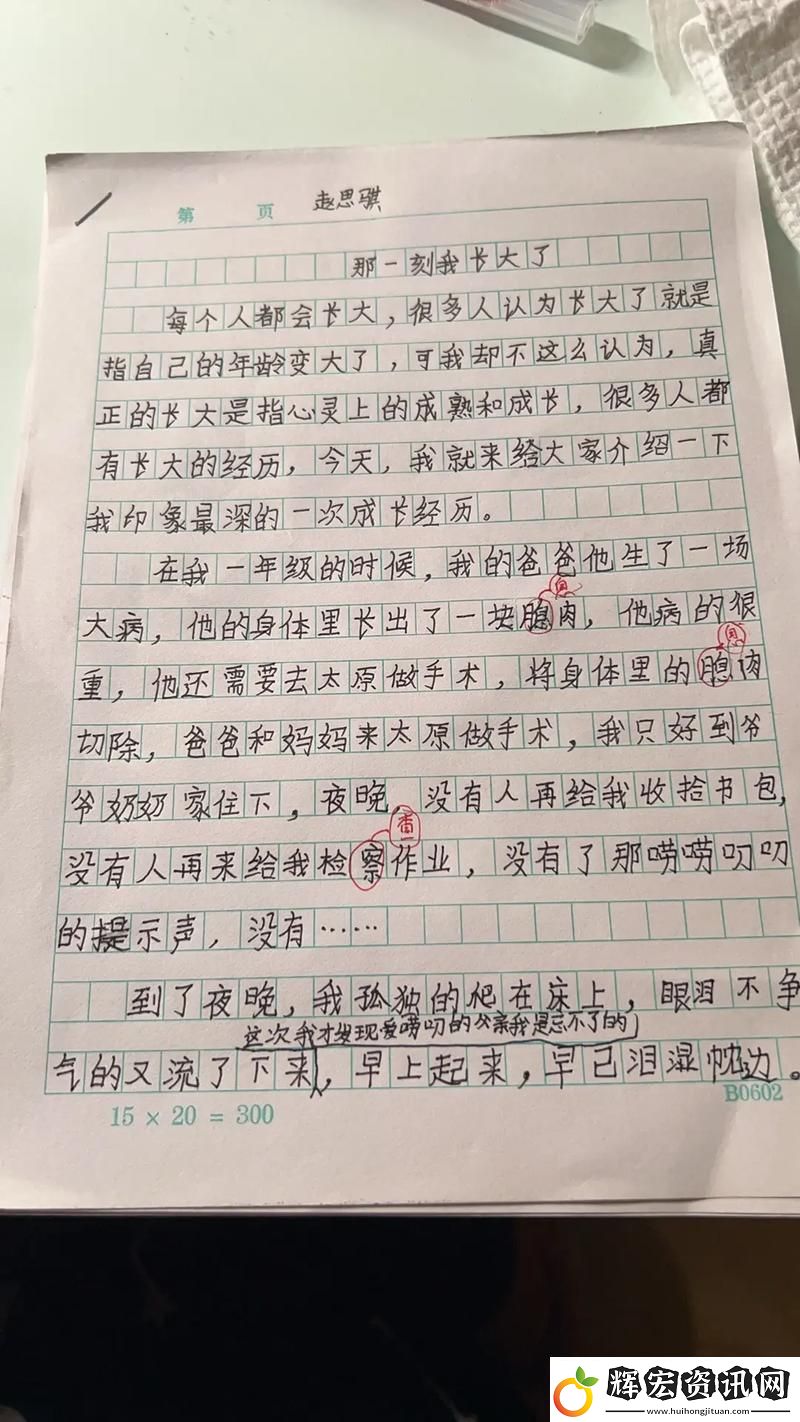 第 页 赵思骐
那一刻我长大了
每个人都会长大，很多人认为长大了就是
指自己的年龄变大了，可我却不这么认为，真
正的长大是指心灵上的成熟和成长，很多人都
有长大的经历，今天，我就来给大家介绍一下
我印象最深的一次成长经历。
在我一年级的时候，我的爸爸他生了一场
息
大病，他的身体里长出了一块腺肉，他病的很
息
重，他还需要去太原做手术，将身体里的腺肉
切除，爸爸和妈妈来太原做手术，我只好到爷
爷奶奶家住下，夜晚，没有人再给我收拾书包，
查
没有人再来给我检察作业，没有了那唠唠叨叨
的提示声，没有……
到了夜晚，我孤独的爬在床上，眼泪不争
这次我才发现爱唠叨的父亲我是忘不了的
气的又流了下来，早上起来，早已泪湿枕边。
B0602
15 × 20 = 300
辉宏资讯网
www.huihongjituan.com